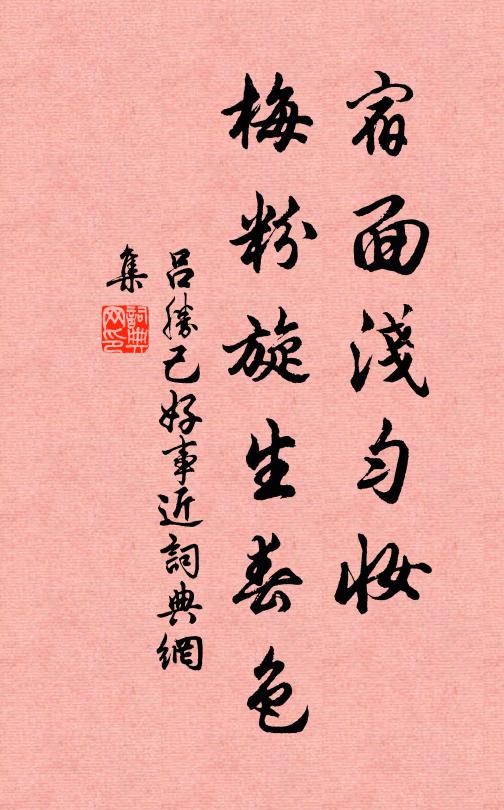 宿面淺勻妝
梅粉旋生春色
呂勝己好事近詞典網
集
詞典
网印